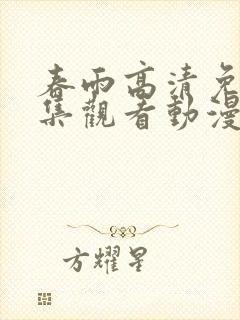 春雨高清免
集觀看動漫
方耀星